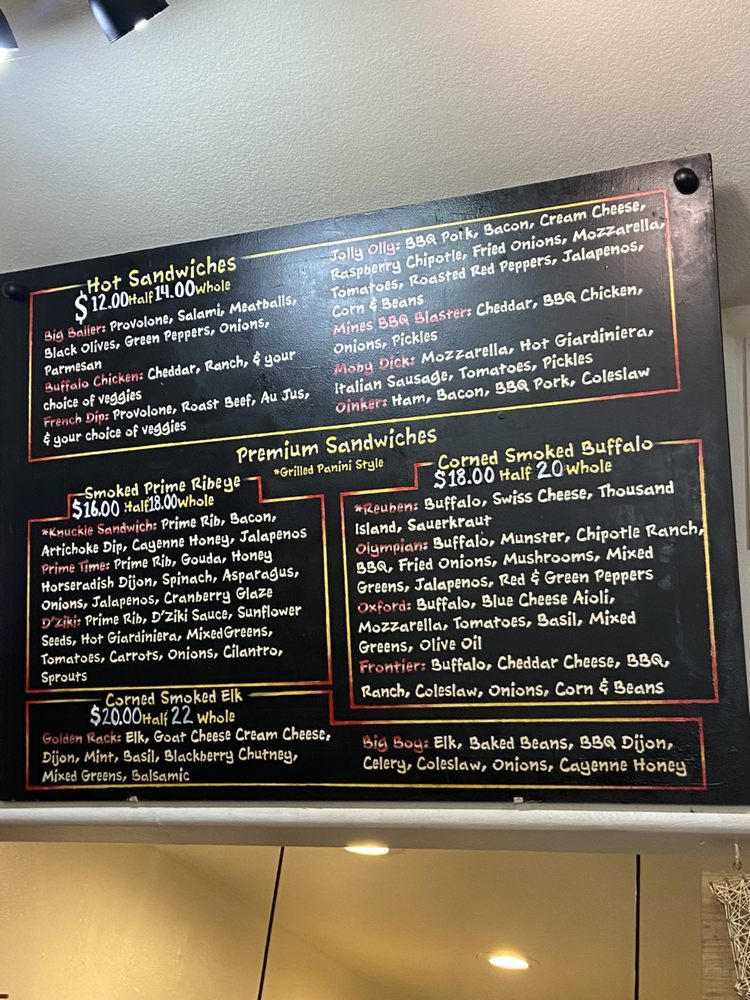 Hot Sandwiches
$12.00 Half 14.00 Whole
Big Baller: Provolone, Salami, Meatballs,
Black Olives, Green Peppers, Onions,
Parmesan
Buffalo Chicken: Cheddar, Ranch, & your
choice of veggies
French Dip: Provolone, Roast Beef, Au Jus,
& your choice of veggies
Jolly Olly: BBQ Pork, Bacon, Cream Cheese,
Raspberry Chipotle, Fried Onions, Mozzarella,
Tomatoes, Roasted Red Peppers, Jalapenos,
Corn & Beans
Mines BBQ Blaster: Cheddar, BBQ Chicken,
Onions, Pickles
Moby Dick: Mozzarella, Hot Giardiniera,
Italian Sausage, Tomatoes, Pickles
Oinker: Ham, Bacon, BBQ Pork, Coleslaw
Premium Sandwiches
*Grilled Panini Style
Smoked Prime Ribeye
$16.00 Half 18.00 Whole
*Knuckle Sandwich: Prime Rib, Bacon,
Artichoke Dip, Cayenne Honey, Jalapenos
Prime Time: Prime Rib, Gouda, Honey
Horseradish Dijon, Spinach, Asparagus,
Onions, Jalapenos, Cranberry Glaze
D'Ziki: Prime Rib, D'Ziki Sauce, Sunflower
Seeds, Hot Giardiniera, MixedGreens,
Tomatoes, Carrots, Onions, Cilantro,
Sprouts
Corned Smoked Buffalo
$18.00 Half 20 Whole
*Reuben: Buffalo, Swiss Cheese, Thousand
Island, Sauerkraut
Olympian: Buffalo, Munster, Chipotle Ranch,
BBQ, Fried Onions, Mushrooms, Mixed
Greens, Jalapenos, Red & Green Peppers
Oxford: Buffalo, Blue Cheese Aioli,
Mozzarella, Tomatoes, Basil, Mixed
Greens, Olive Oil
Frontier: Buffalo, Cheddar Cheese, BBQ,
Ranch, Coleslaw, Onions, Corn & Beans
Corned Smoked Elk
$20.00 Half 22 Whole
Golden Rack: Elk, Goat Cheese Cream Cheese,
Dijon, Mint, Basil, Blackberry Chutney,
Mixed Greens, Balsamic
Big Boy: Elk, Baked Beans, BBQ Dijon,
Celery, Coleslaw, Onions, Cayenne Honey